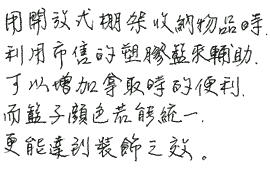 用開放式棚架收納物品時.
利用市售的塑膠籃來輔助.
可以增加拿取時的便利.
而籃子顏色若能統一.
更能達到裝飾之效。